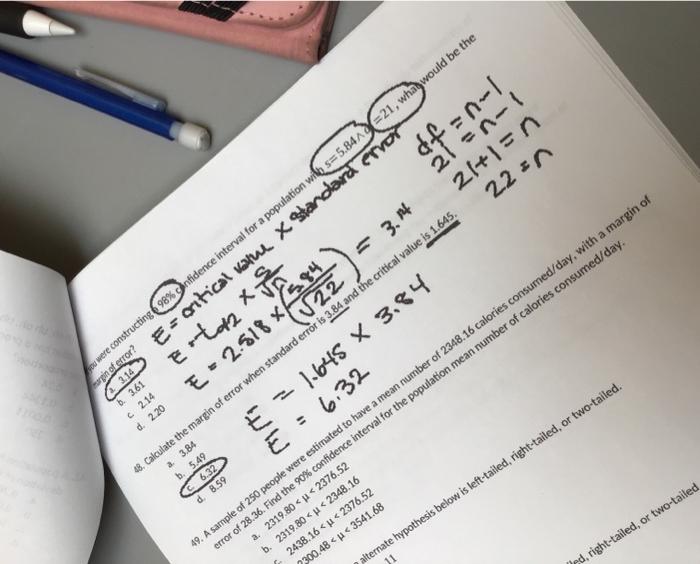 you were constructing 98% confidence interval for a population with s=5.84 =21, what would be the
margin of error?
a. 3.14
b. 3.61
c. 2.14
d. 2.20
E = critical value x standard error
E = tα/2 x s/√n
E = 2.518 x (5.84/√22) = 3.14
df = n-1
21 = n-1
21+1 = n
22 = n
48. Calculate the margin of error when standard error is 3.84 and the critical value is 1.645.
a. 3.84
b. 5.49
c. 6.32
d. 8.59
E = 1.645 x 3.84
E = 6.32
49. A sample of 250 people were estimated to have a mean number of 2348.16 calories consumed/day, with a margin of
error of 28.36. Find the 90% confidence interval for the population mean number of calories consumed/day.
a. 2319.80 < μ < 2376.52
b. 2319.80 < μ < 2348.16
c. 2438.16 < μ < 2376.52
2300.48 < μ < 3541.68
alternate hypothesis below is left-tailed, right-tailed, or two-tailed.
11
right-tailed, or two-tailed